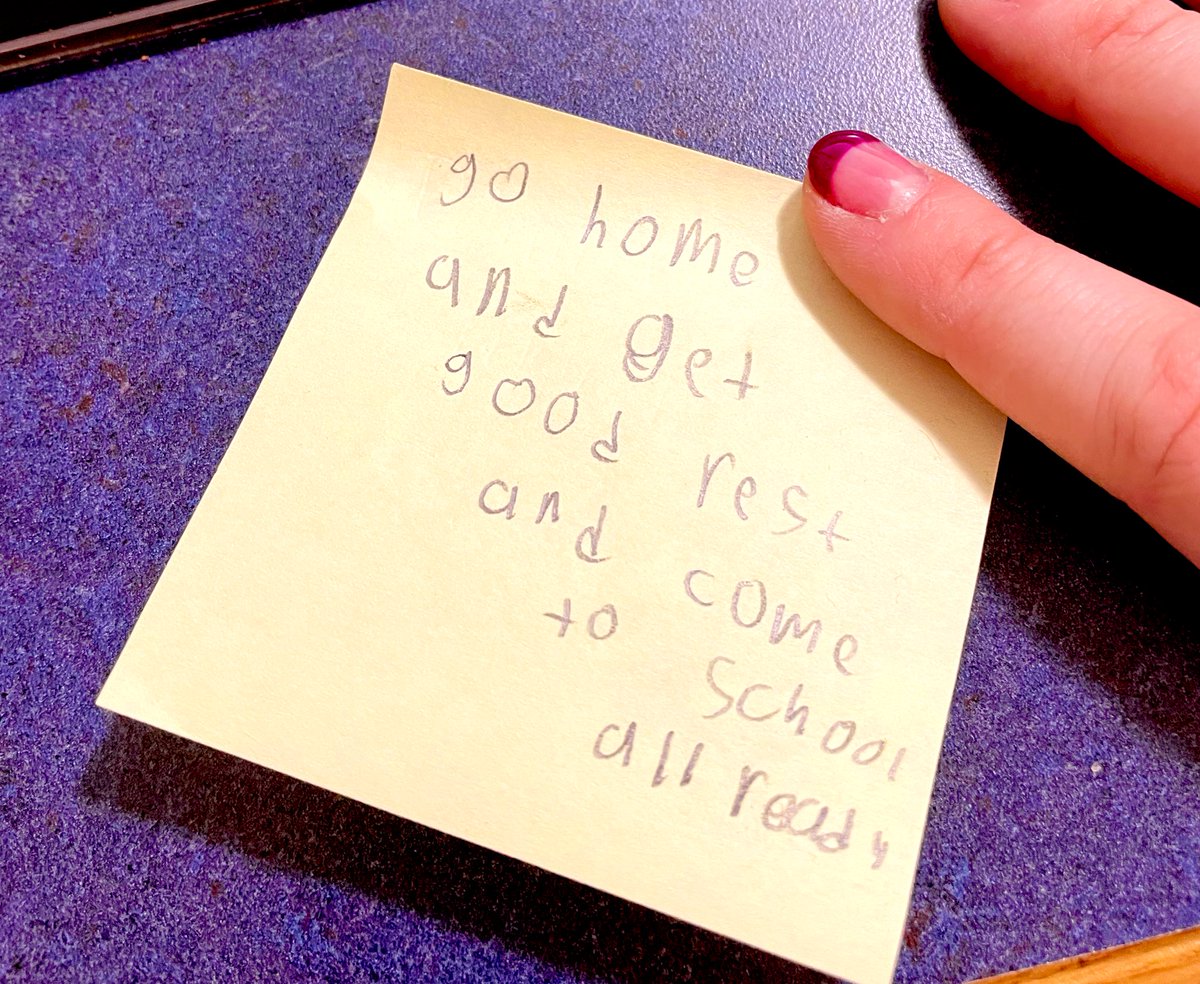 go home
and get
good rest
and come
to school
all ready